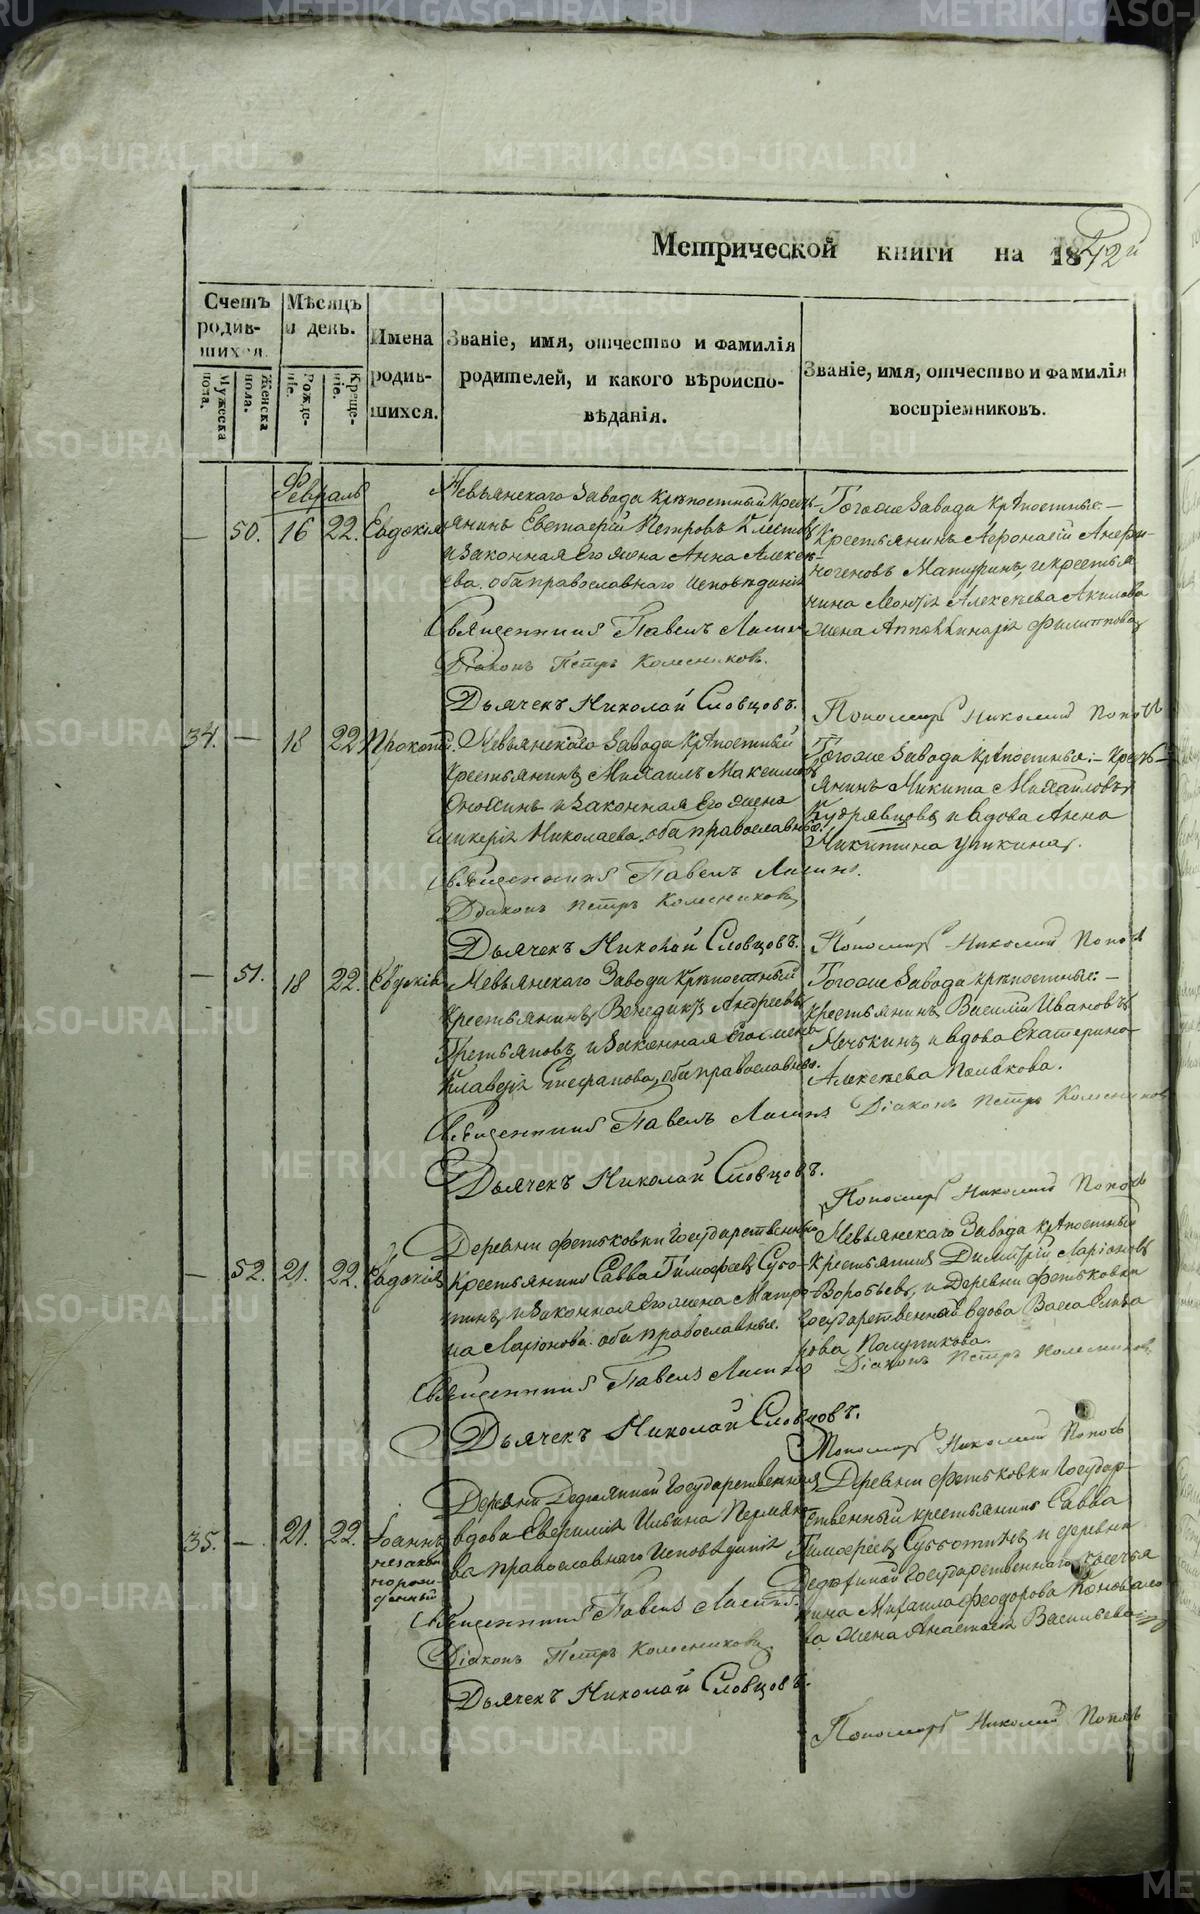 Метрической книги на 1842й
Счетъ родив-шихся.
Мужеска пола.
Женска пола.
Мѣсяцъ и день.
Рожде-ніе.
Креще-ніе.
Имена родив-шихся.
Званіе, имя, отчество и фамилія
родителей, и какого вѣроиспо-
вѣданія.
Званіе, имя, отчество и фамилія
воспріемниковъ.
Февраль
— 50. 16 22. Евдокія
Невьянскаго Завода крѣпостный кресть-
янинъ Петровъ
и законная его жена Анна Алексѣ-
ева. оба православнаго исповѣданія
Священникъ Павелъ
Діаконъ Петръ Колесниковъ.
Дьячекъ Николай Словцовъ.
Тогоже Завода крѣпостные: —
Крестьянинъ Афонасій
и крестья
нина Алексѣева
жена Филиппова
Пономарь Николай Поповъ
34. — 18 22 Прокопій.
Невьянскаго Завода крѣпостный
крестьянинъ Михаилъ Максимовъ
и законная его жена
Гликерія Николаева. оба православные.
Священникъ Павелъ
Діаконъ Петръ Колесниковъ
Дьячекъ Николай Словцовъ.
Тогоже Завода крѣпостные: — кресть—
янинъ Никита Михайловъ
Кудрявцовъ и вдова Анна
Никитина
Пономарь Николай Поповъ
— 51. 18 22. Евдокія
Невьянскаго Завода крѣпостный
крестьянинъ Венедиктъ Андреевъ
Третьяковъ и законная его жена
Клавдія Стефанова, оба православные.
Священникъ Павелъ
Дьячекъ Николай Словцовъ.
Тогоже Завода крѣпостные: —
крестьянинъ Василій Ивановъ
и вдова Екатерина
Алексѣева Полякова.
Діаконъ Петръ Колесниковъ
Пономарь Николай Поповъ
— 52. 21. 22. Евдокія
Деревни Фетьковки Государственный
крестьянинъ Савва Тимофеевъ Субо-
тинъ, и законная его жена Матро-
на Ларіонова. оба православные.
Священникъ Павелъ
Дьячекъ Николай Словцовъ.
Невьянскаго Завода крѣпостный
крестьянинъ Димитрій Ларіоновъ
Воробьевъ, и Деревни Фетьковки
Государственная вдова Васса
Діаконъ Петръ Колесниковъ
Пономарь Николай Поповъ
35. — 21. 22. Іоаннъ
незакон
норож
денный
Деревни Дедюхиной Государственная
вдова Евфимія Ильина Пермяко-
ва православнаго исповѣданія
Священникъ Павелъ
Діаконъ Петръ Колесниковъ
Дьячекъ Николай Словцовъ.
Деревни Фетьковки Государ-
ственный крестьянинъ Савва
Тимофеевъ Субботинъ и деревни
Дедюхиной Государственнаго крестья
нина Михаила Феодорова Коновало
ва жена Анастасія Васильева
Пономарь Николай Поповъ
METRIKI.GASO-URAL.RU